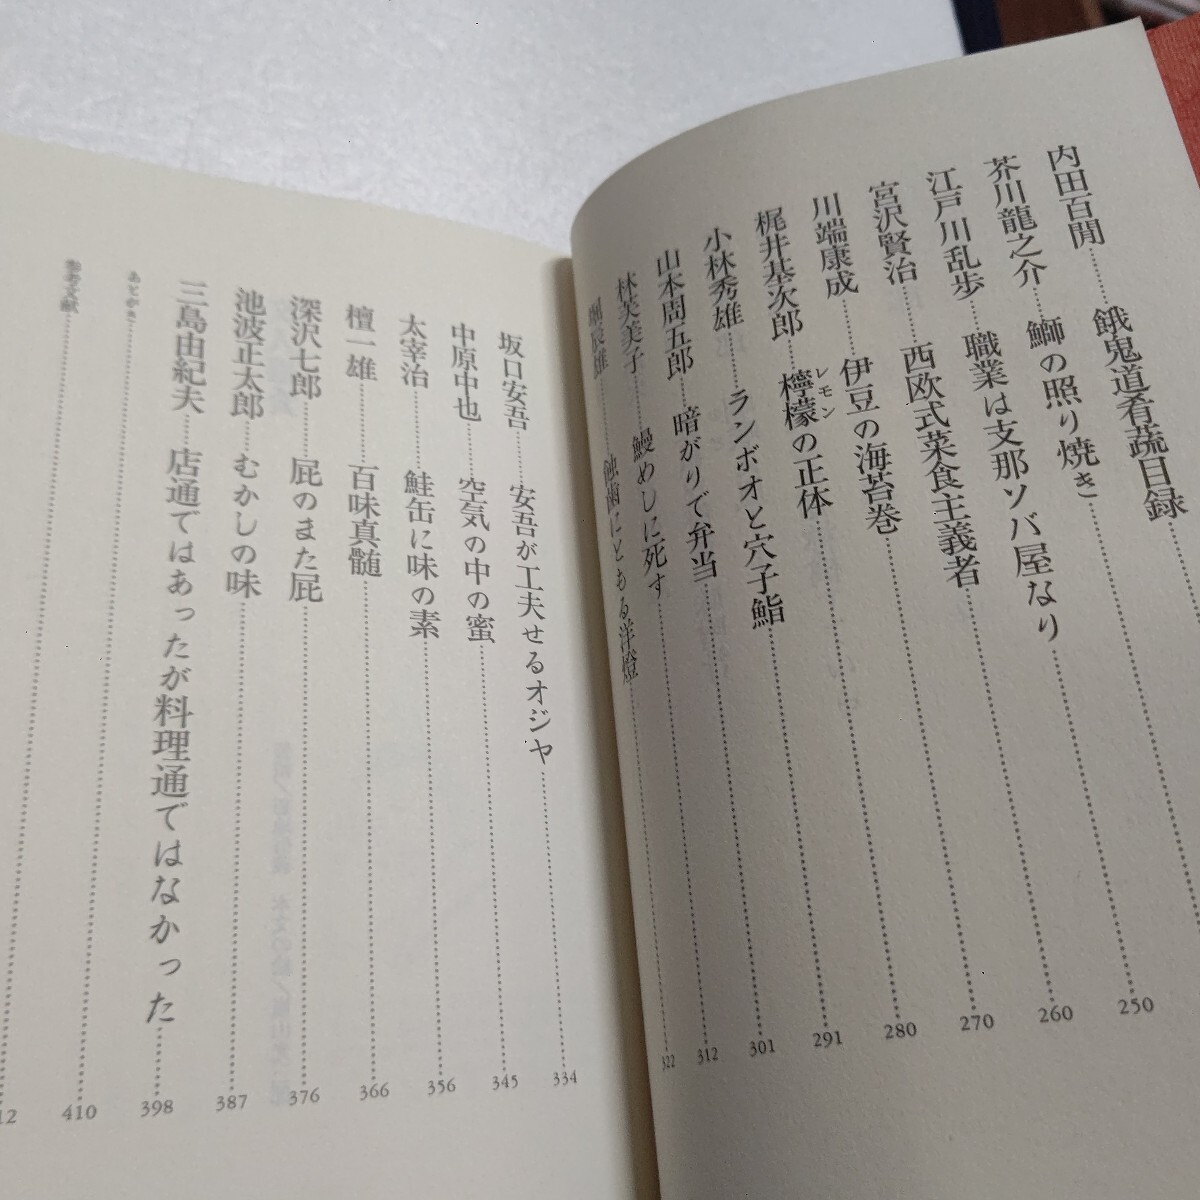 内田百閒……餓鬼道肴蔬目録
芥川龍之介……鰤の照り焼き
江戸川乱歩……職業は支那ソバ屋なり……250
宮沢賢治……西欧式菜食主義者……260
川端康成……伊豆の海苔巻……270
梶井基次郎……檸檬の正体……280
レモン
小林秀雄……ランボオと穴子鮨……291
山本周五郎……暗がりで弁当……301
林芙美子……鰻めしに死す……312
堀辰雄……蝕歯にともる洋燈……322
坂口安吾……安吾が工夫せるオジヤ……334
中原中也……空気の中の蜜……345
太宰治……鮭缶に味の素……356
檀一雄……百味真髄……366
深沢七郎……屁のまた屁……376
池波正太郎……むかしの味……387
三島由紀夫……店通ではあったが料理通ではなかった……398
あとがき……410
参考文献……12